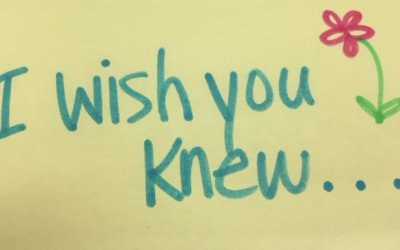 I wish you
knew....